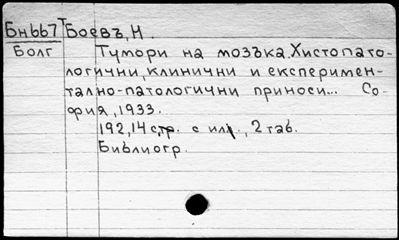 Бн667 Боевъ, Н.
Болг Тумори на мозъка. Хистопато-
логични, клинични и експеримен-
тално-патологични приноси... Со-
фия, 1933.
192, 14 стр. с ил., 2 таб.
Библиогр.